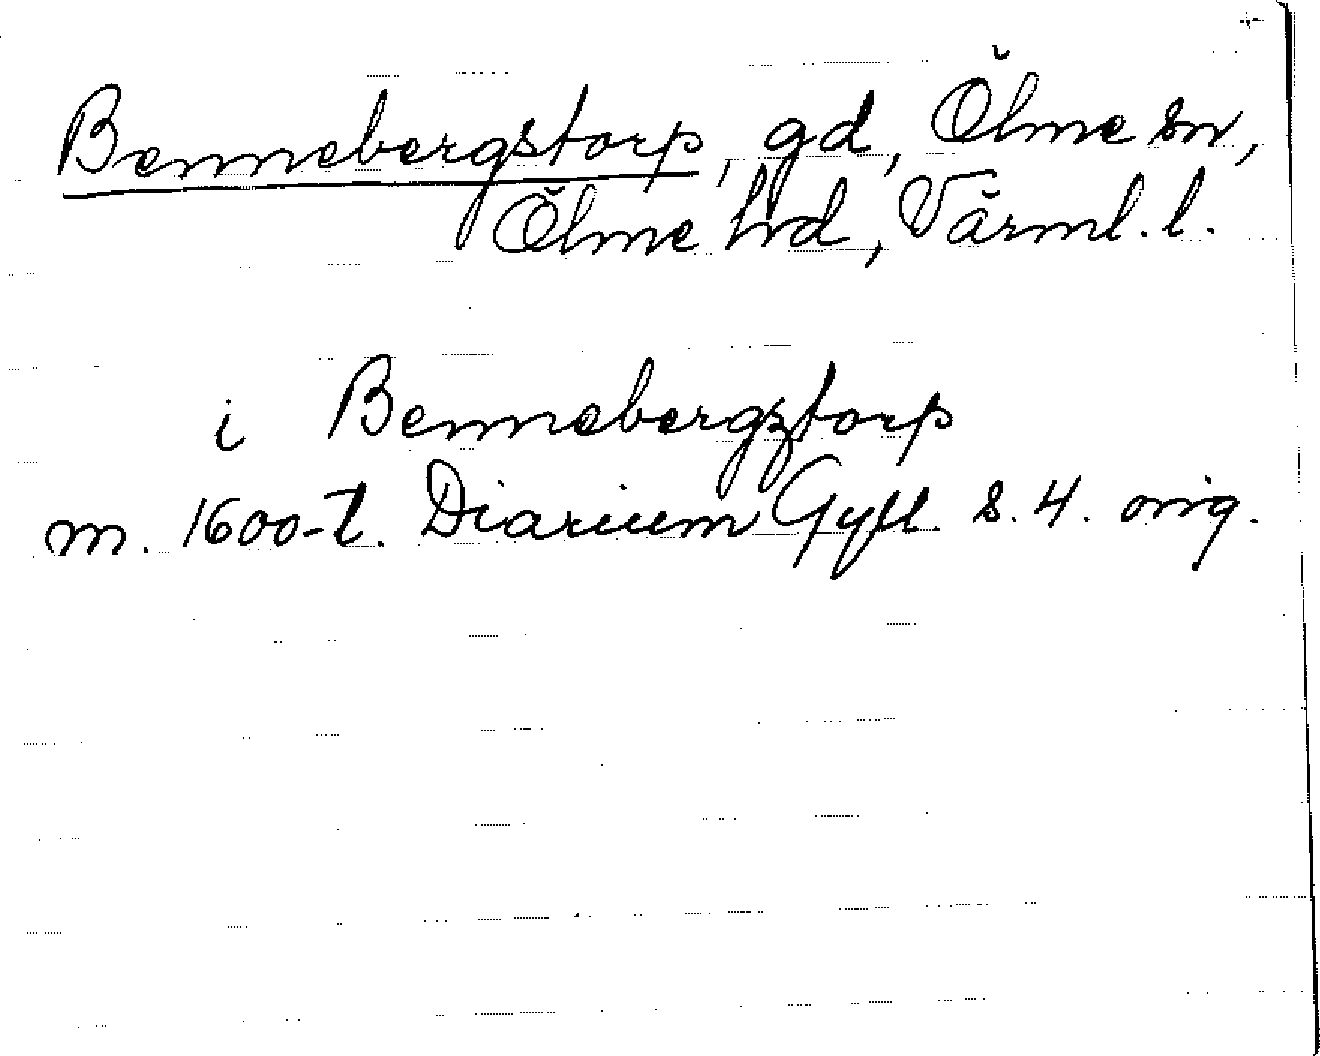 Bennebergstorp, gd, Ölme sn,
Ölme hd, Värml. l.
i Bennebergztorp
m. 1600-t. Diarium Gyll s. 4. orig.